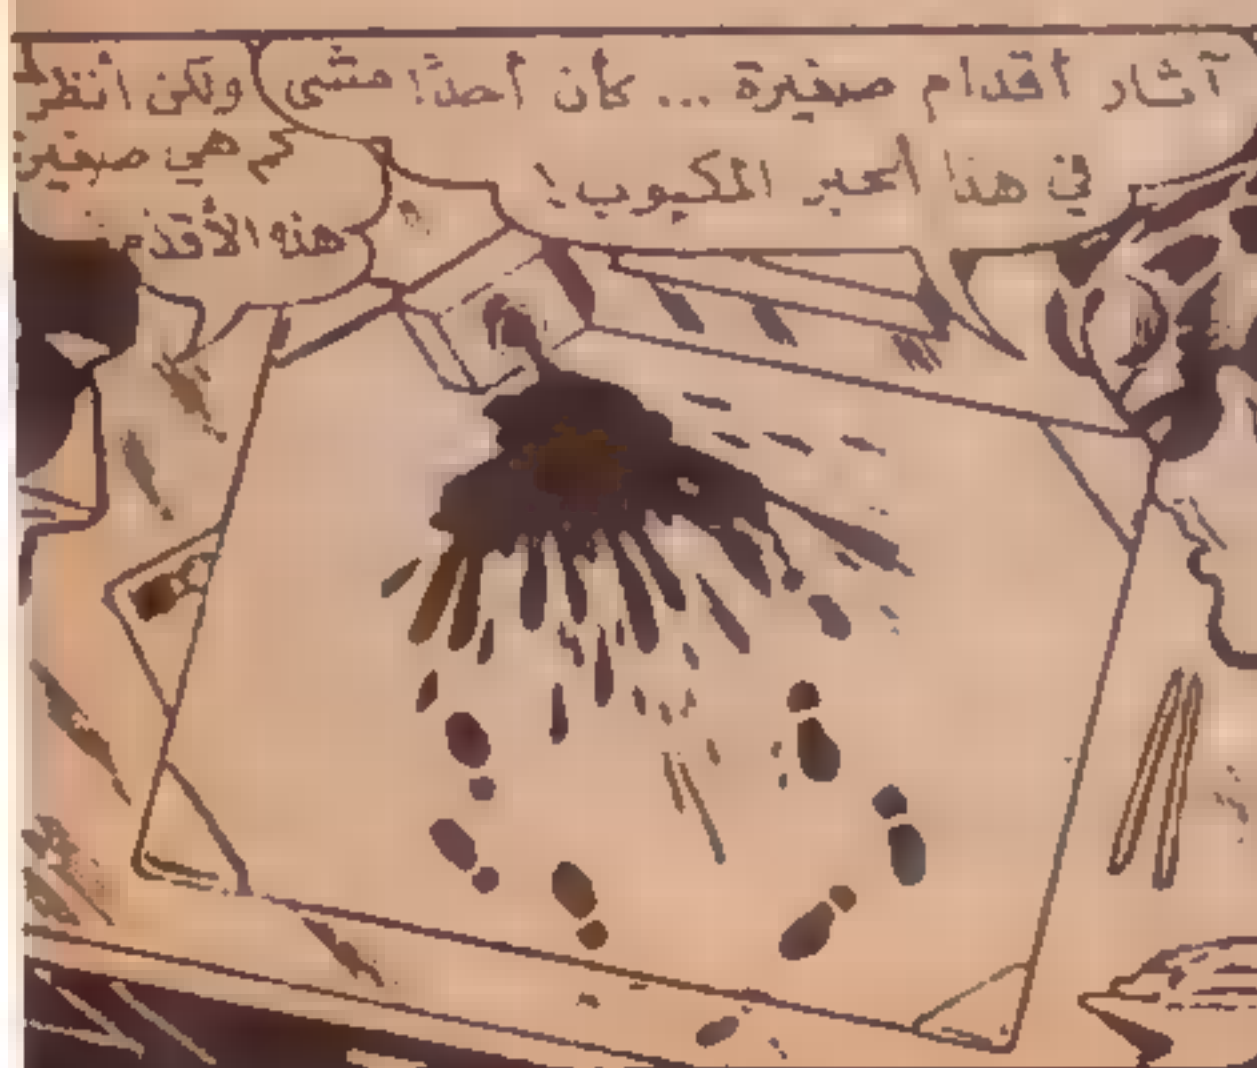 آثار أقدام صغيرة ... كأن أحدًا مشى
في هذا الحبر المكبوب!
ولكن انظر
كم هي صغيرة
هذه الأقدام